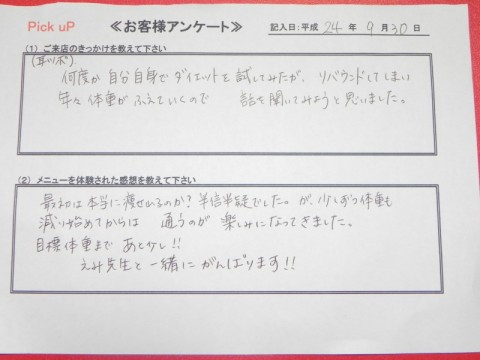 Pick uP
≪お客様アンケート≫
記入日:平成 24 年 9 月 30 日
(1) ご来店のきっかけを教えて下さい
(耳ツボ)
何度か自分自身でダイエットを試してみたが、リバウンドしてしまい
年々体重がふえていくので 話を聞いてみようと思いました。
(2) メニューを体験された感想を教えて下さい
最初は本当に痩せれるのか?半信半疑でした。が、少しずつ体重も
減り始めてからは 通うのが 楽しみになってきました。
目標体重まで あと少し!!
えみ先生と一緒にがんばります!!